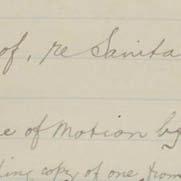 of, re Sanita
e of Motion by
ting copy of one from